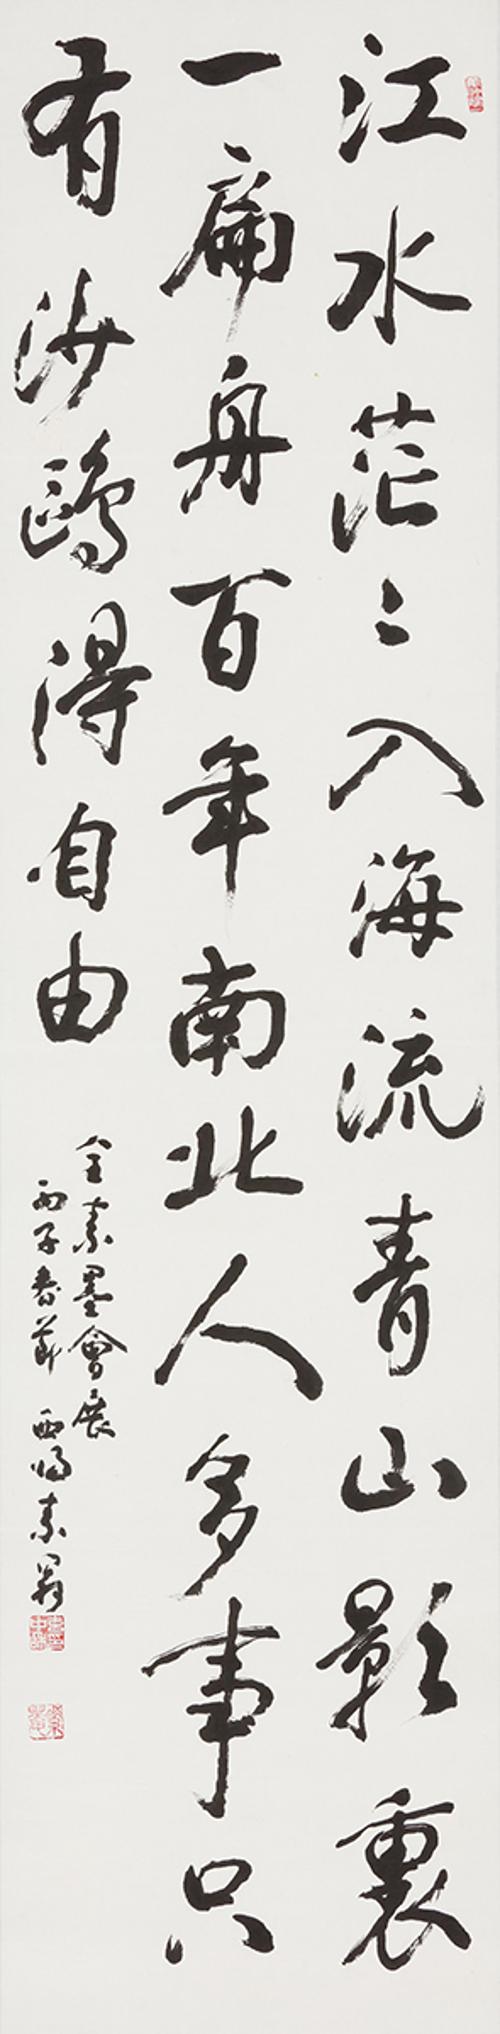 江水茫〻入海流青山影裏
一扁舟百年南北人多事只
有沙鷗得自由
全素墨會展
丙子春節 西湖素翁